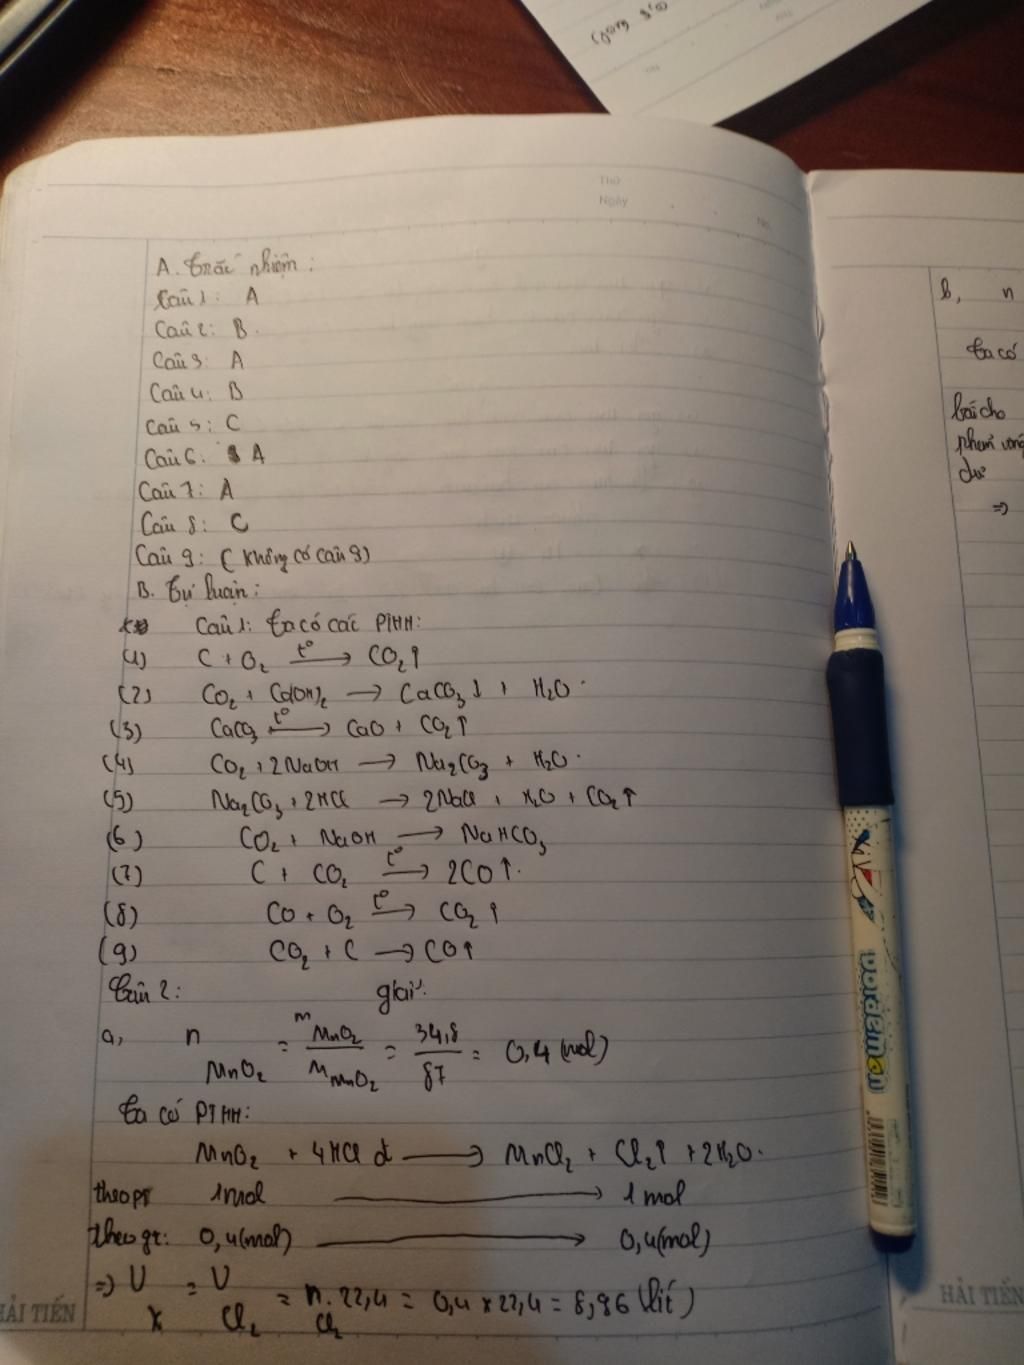 Gang
Thứ
Ngày
No.
A. trắc nhiệm:
Câu 1: A
Câu 2: B.
Câu 3: A
Câu 4: B
Câu 5: C
Câu 6: A
Câu 7: A
Câu 8: C
Câu 9: (không có câu 9)
B. Tự luận:
Câu 1: ta có các PTHH:
(1) C + O₂ t° → CO₂↑
(2) CO₂ + Ca(OH)₂ → CaCO₃↓ + H₂O.
(3) CaCO₃ t° → CaO + CO₂↑
(4) CO₂ + 2NaOH → Na₂CO₃ + H₂O.
(5) Na₂CO₃ + 2HCl → 2NaCl + H₂O + CO₂↑
(6) CO₂ + NaOH → NaHCO₃
(7) C + CO₂ t° → 2CO↑.
(8) CO + O₂ t° → CO₂↑
(9) CO₂ + C → CO↑
Câu 2: giải:
a, n MnO₂ = m MnO₂ / M MnO₂ = 34,8 / 87 = 0,4 (mol)
Ta có PTHH:
MnO₂ + 4HCl đ → MnCl₂ + Cl₂↑ + 2H₂O.
theo pt 1mol → 1mol
theo gt: 0,4(mol) → 0,4(mol)
=> V x = V Cl₂ = n Cl₂ . 22,4 = 0,4 x 22,4 = 8,96 (lít)
HẢI TIẾN
b, n
ta có
bài cho
phản ứng
dư
=>
HẢI TIẾN
Doraemon